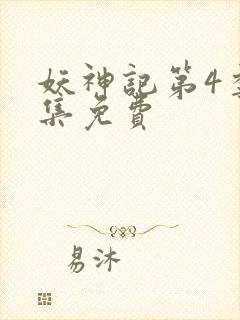 妖神記第4季
集免費
易沐